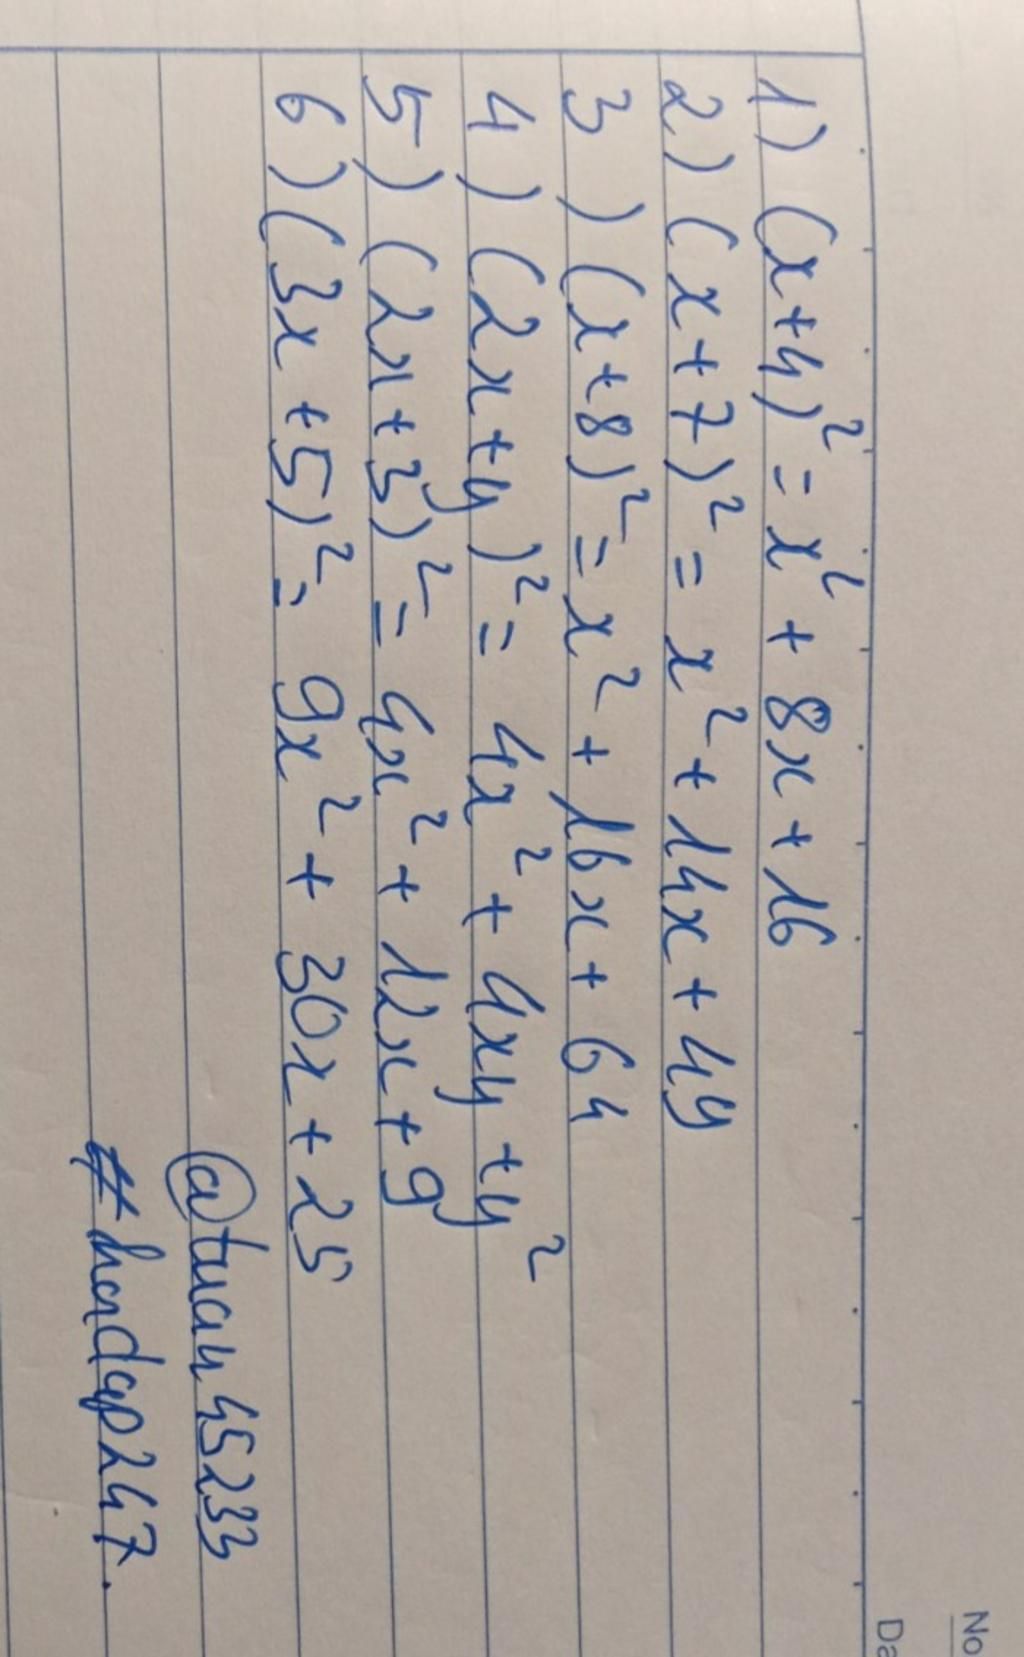 No
Da
1) (x+4)² = x² + 8x + 16
2) (x+7)² = x² + 14x + 49
3) (x+8)² = x² + 16x + 64
4) (2x+y)² = 4x² + 4xy + y²
5) (2x+3)² = 4x² + 12x + 9
6) (3x+5)² = 9x² + 30x + 25
@tuan45233
#hoidap247.